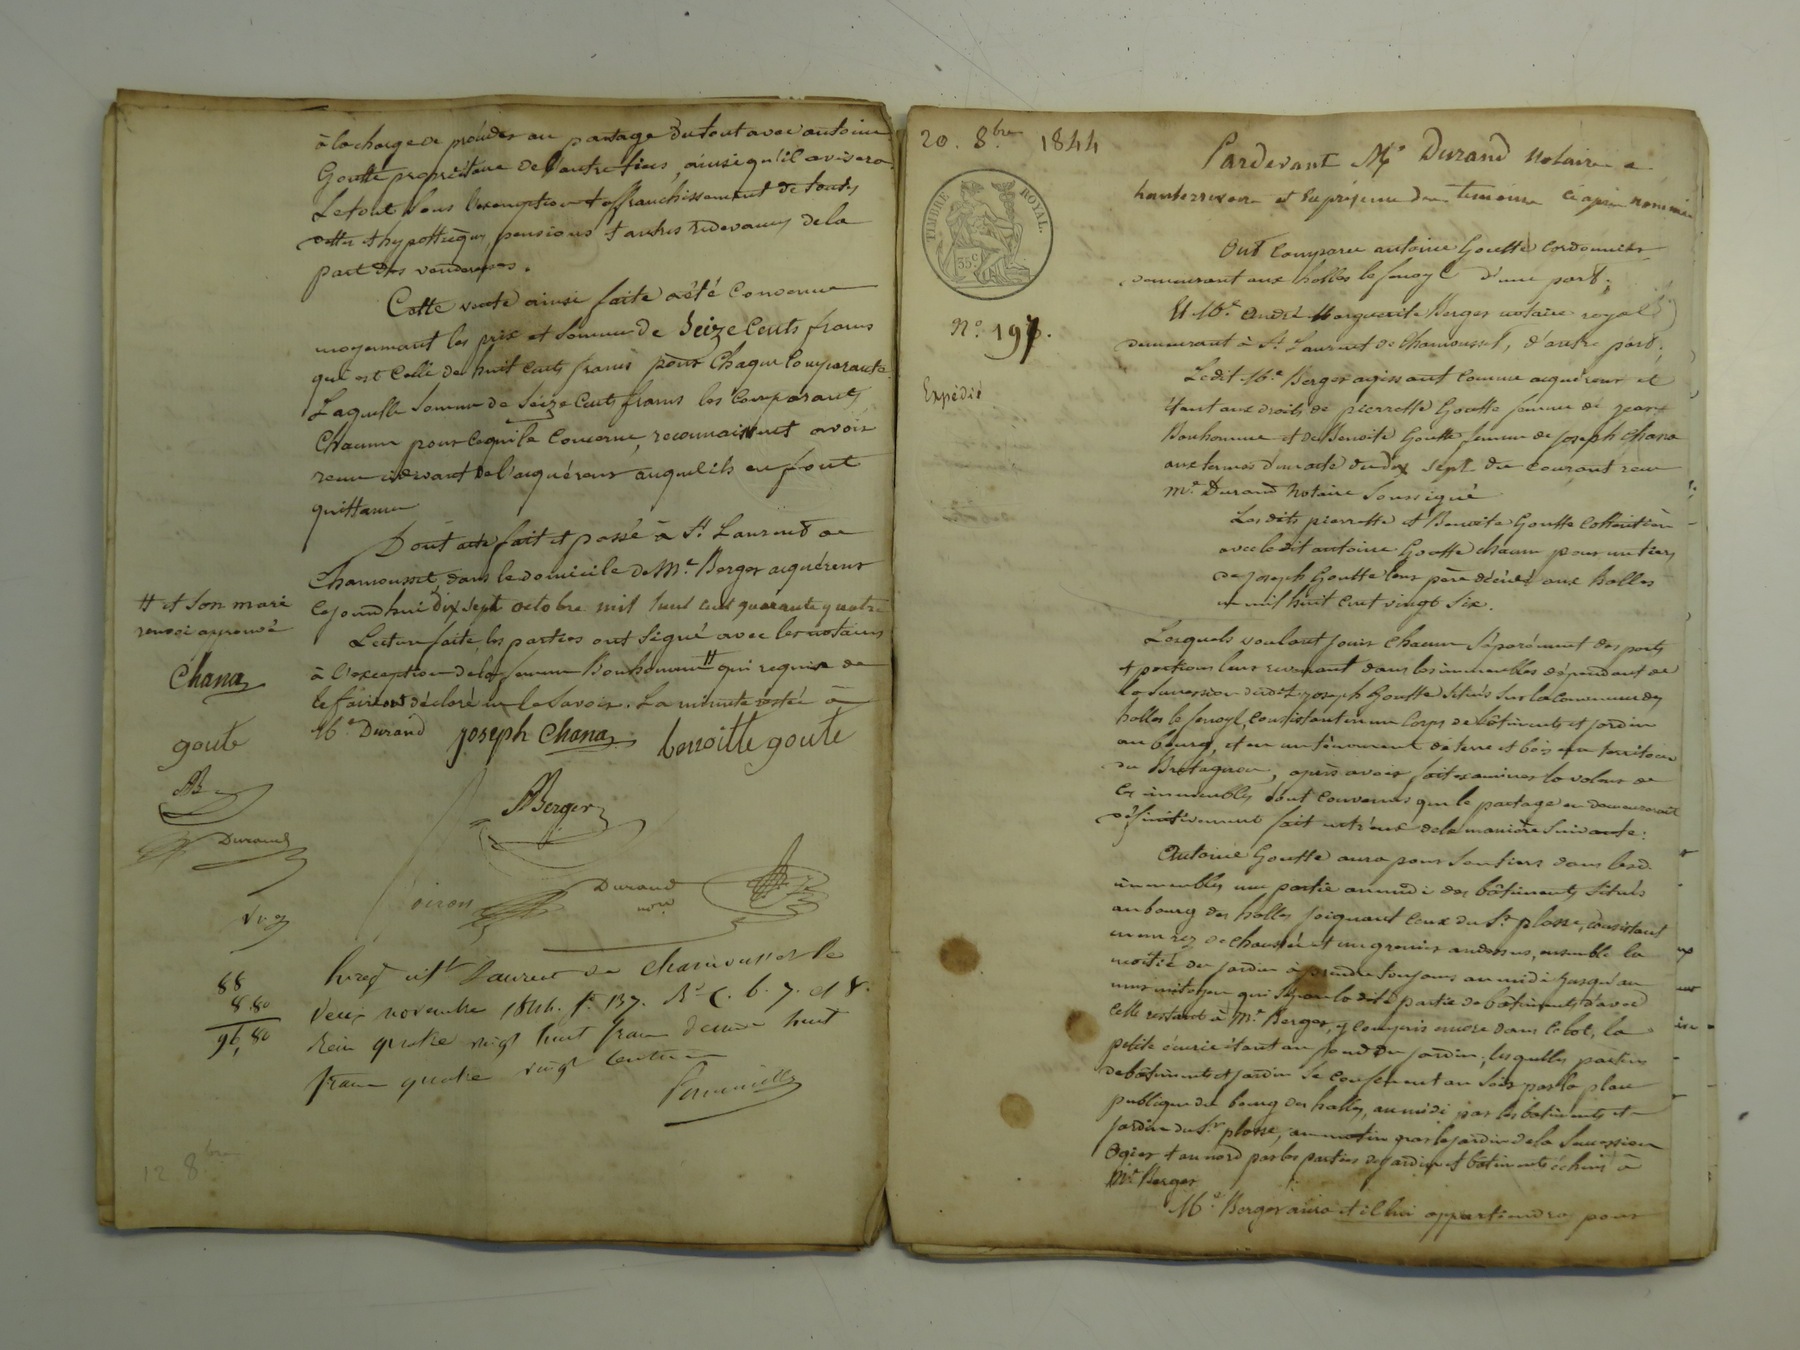 à la charge de procéder au partage du tout avec antoine
Goutte propriétaire de l'autre tiers, ainsi qu'il avisera
Le tout sous l'exemption & affranchissement de toutes
dettes & hypothèques, pensions & autres redevances de la
part des venderesses.
Cette vente ainsi faite a été convenue
moyennant les prix et somme de Seize Cents francs
qui est celle de huit cents francs pour chaque Comparante.
Laquelle somme de Seize Cents francs les comparants
Chacun pour ce qui le concerne, reconnaissent avoir
reçu de l'acquéreur auquel ils en font
quittance
Dont acte fait et passé à St Laurent de
Chamousset, dans le domicile de Me Berger acquéreur
Cejourd'hui dix sept octobre mil huit cent quarante quatre
Lecture faite, les parties ont signé avec les notaires
à l'exception de la femme Bonhomme # qui requise de
le faire ont déclaré ne le savoir. La minute restée à
Me Durand joseph Chana benoitte goute
# et son mari
renvoi approuvé
Chana
goute
AB
Durand
ABerger
Durand
nore
Enreg. à St Laurent de Chamousset le
deux novembre 1844. fo 137. Ro C. 6. 7. et 8.
Reçu quatre vingt huit francs décime huit
francs quatre vingt centimes
88
8.80
96,80
12 8.bre
20. 8.bre 1844
TIMBRE ROYAL.
35 c
No. 197.
Expédié
Pardevant Me Durand Notaire a
hauterivoire et En présence des témoins ci après nommés
Ont Comparu antoine Goutte Cordonnier
demeurant aux halles le fenoyl d'une part;
Et Me André Marguerite Berger notaire royal
demeurant à St Laurent de Chamousset, d'autre part;
Ledit Me Berger agissant comme acquéreur et
étant aux droits de pierrette Goutte femme de jean
Bonhomme et de Benoite Goutte femme de joseph Chana
aux termes d'un acte du dix sept du courant reçu
Me Durand Notaire Soussigné
Lesdits pierrette et Benoite Goutte Cohéritières
avec ledit antoine Goutte chacun pour un tiers
de joseph Goutte leur père décédé aux halles
en mil huit cent vingt six.
Lesquels voulant jouir chacun Séparément des parts
& portions leur revenant dans les immeubles dépendant de
la Succession dudit joseph Goutte Situés sur la Commune des
halles le fenoyl, consistant en un Corps de bâtiments et jardin
au bourg, et en un ténement de terre et bois au territoire
du Bretagnon, après avoir fait examiner la valeur de
ces immeubles sont convenus que le partage en demeurerait
définitivement fait entr'eux de la manière Suivante:
Antoine Goutte aura pour Son tiers dans lesd.
immeubles une partie au midi des bâtiments Situés
au bourg des halles joignant ceux du Sr plasse, consistant
en un rez de chaussée et un grenier au dessus, ensemble la
moitié du jardin à prendre toujours au midi jusqu'au
mur mitoyen qui sépare ladite partie de bâtiments d'avec
celle restant à Me Berger, y compris encore dans le lot, la
petite écurie étant au fond du jardin, lesquelles parties
de bâtiments et jardin se confinent au soir par la place
publique du bourg des halles, au midi par les bâtiments et
jardin du Sr plasse, au matin par le jardin de la Succession
Ogier & au nord par les parties de jardin et bâtiments échus à
Me Berger
Me Berger aura et il lui appartiendra pour